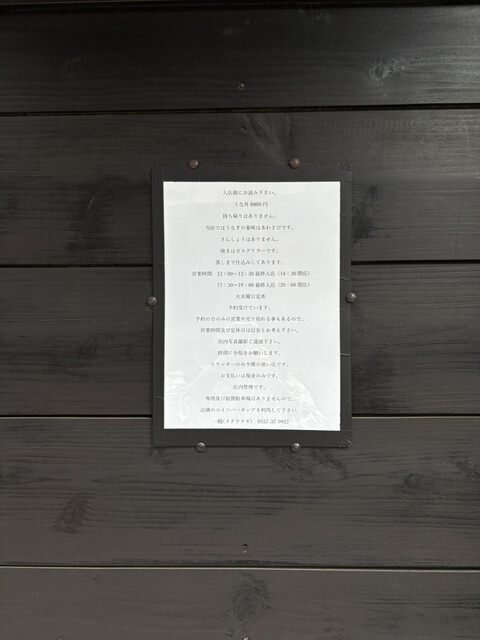 入店前にお読み下さい。
うな丼 8800円
持ち帰りはありません。
当店ではうなぎの薬味は本わさびです。
さんしょうはありません。
焼きはガスグリラーです。
蒸しまで仕込みしてあります。
営業時間 12：00〜13：30 最終入店（14：30 閉店）
17：30〜19：00 最終入店（20：00 閉店）
火水曜日定休
予約受けています。
予約の方のみの営業や売り切れる事もあるので、
営業時間及び定休日は目安とお考え下さい。
店内写真撮影ご遠慮下さい。
時間に余裕をお願いします。
カウンターのみ9席の狭い店です。
お支払いは現金のみです。
店内禁煙です。
専用及び提携駐車場はありませんので、
近隣のコインパーキングを利用して下さい。
(イチウナギ) 0557-37-9957